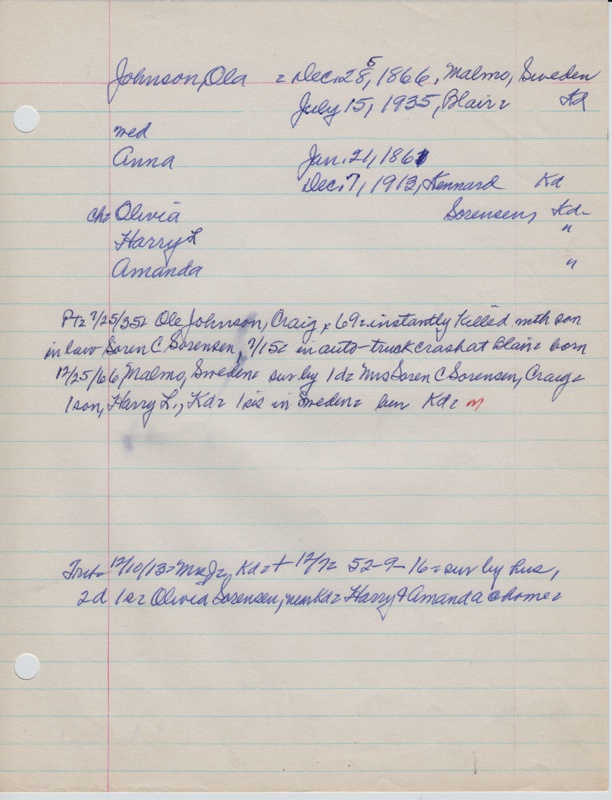 Johnson, Ola = Dec. 28, 1866, Malmo, Sweden
5
July 15, 1935, Blair = Kd
med
Anna Jan. 21, 1861
Dec. 7, 1913, Kennard Kd
ch= Olivia Sorensen, Kd-
Harry L "
Amanda "
Pt= 7/25/35= Ole Johnson, Craig, 69= instantly killed with son
in law Soren C Sorensen, 7/15= in auto-truck crash at Blair= born
12/25/66, Malmo, Sweden= sur by 1d= Mrs Soren C Sorensen, Craig=
1 son, Harry L., Kd= 1 sis in Sweden= bur Kd= m
12/10/13= Mrs J=, Kd= + 12/7= 52-9-16= sur by hus,
2d 1s= Olivia Sorensen, near Kd= Harry & Amanda @ home=